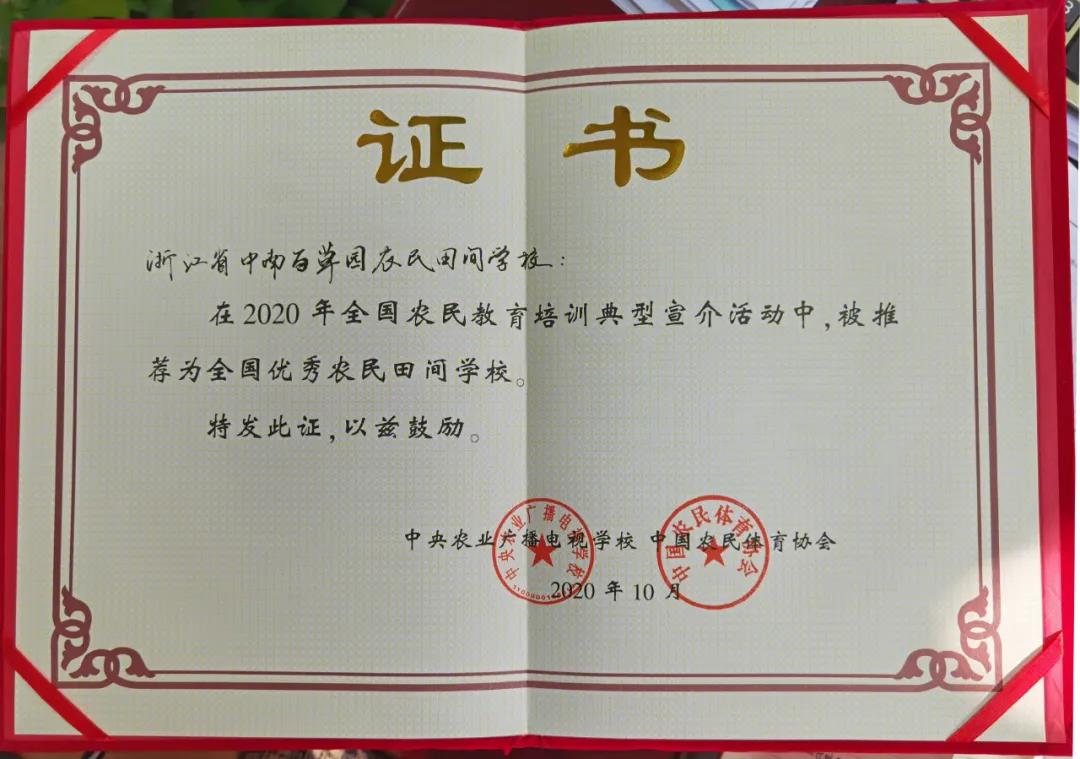 证书
浙江省中南百草园农民田间学校:
在2020年全国农民教育培训典型宣介活动中,被推
荐为全国优秀农民田间学校。
特发此证,以兹鼓励。
中央农业广播电视学校 中国农民体育协会
2020年10月
中央农业广播电视学校
中国农民体育协会